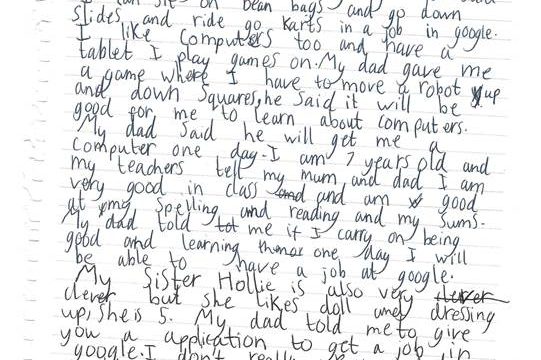 can sit on bean bags and go down
slides and ride go karts in a job in google.
I like computers too and have a
tablet I play games on. My dad gave me
a game where I have to move a robot up
and down squares, he said it will be
good for me to learn about computers.
My dad said he will get me a
computer one day. I am 7 years old and
my teachers tell my mum and dad I am
very good in class and and am good
at my spelling and reading and my sums.
My dad told me if I carry on being
good and learning one day I will
be able to have a job at google.
My sister Hollie is also very clever
clever but she likes doll and dressing
up, she is 5. My dad told me to give
you a application to get a job in
google. I don't really